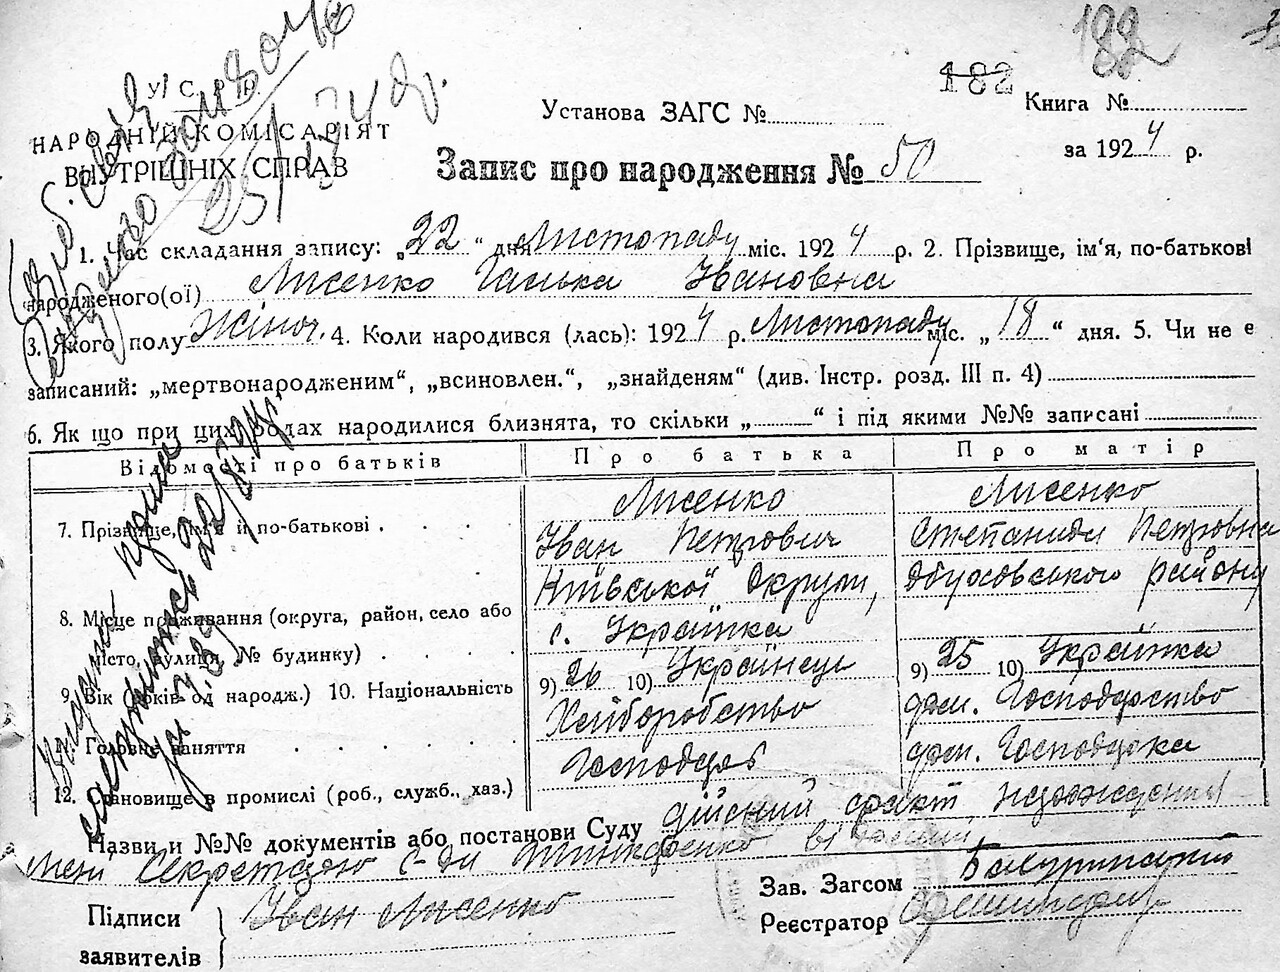 182
182
У. С. Р. Р.
НАРОДНІЙ КОМІСАРІЯТ
ВНУТРІШНІХ СПРАВ
Установа ЗАГС №
Книга №
за 1924 р.
Запис про народження № 50
1. Час складання запису: „22“ дня Листопаду міс. 1924 р. 2. Прізвище, ім‘я, по-батькові
народженого(ої) Лисенко Ганька Івановна
3. Якого полу Жіноч. 4. Коли народився (лась): 1924 р. Листопаду міс. „18“ дня. 5. Чи не є
записаний: „мертвонародженим“, „всиновлен.“, „знайденям“ (див. Інстр. розд. III п. 4)
6. Як що при цих родах народилися близнята, то скільки „ “ і під якими №№ записані
Відомості про батьків Про батька Про матір
7. Прізвище, ім‘я й по-батькові . . . . Лисенко Лисенко
Іван Петрович Степанида Петровна
Київської Округи, Обуховського району
8. Місце проживання (округа, район, село або с. Українка
місто, вулиця, № будинку) . . . .
9. Вік (років од народж.) 10. Національність 9) 26 10) Українець 9) 25 10) Українка
11. Головне заняття . . . . . Хліборобство дом. Господарство
12. Становище в промислі (роб., служб., хаз.) Господарь дом. Господарка
Назви и №№ документів або постанови Суду дійсний факт народження
мені Секретарю с-ди відомий
Зав. Загсом
Підписи
заявителів Іван Лисенко
Реєстратор